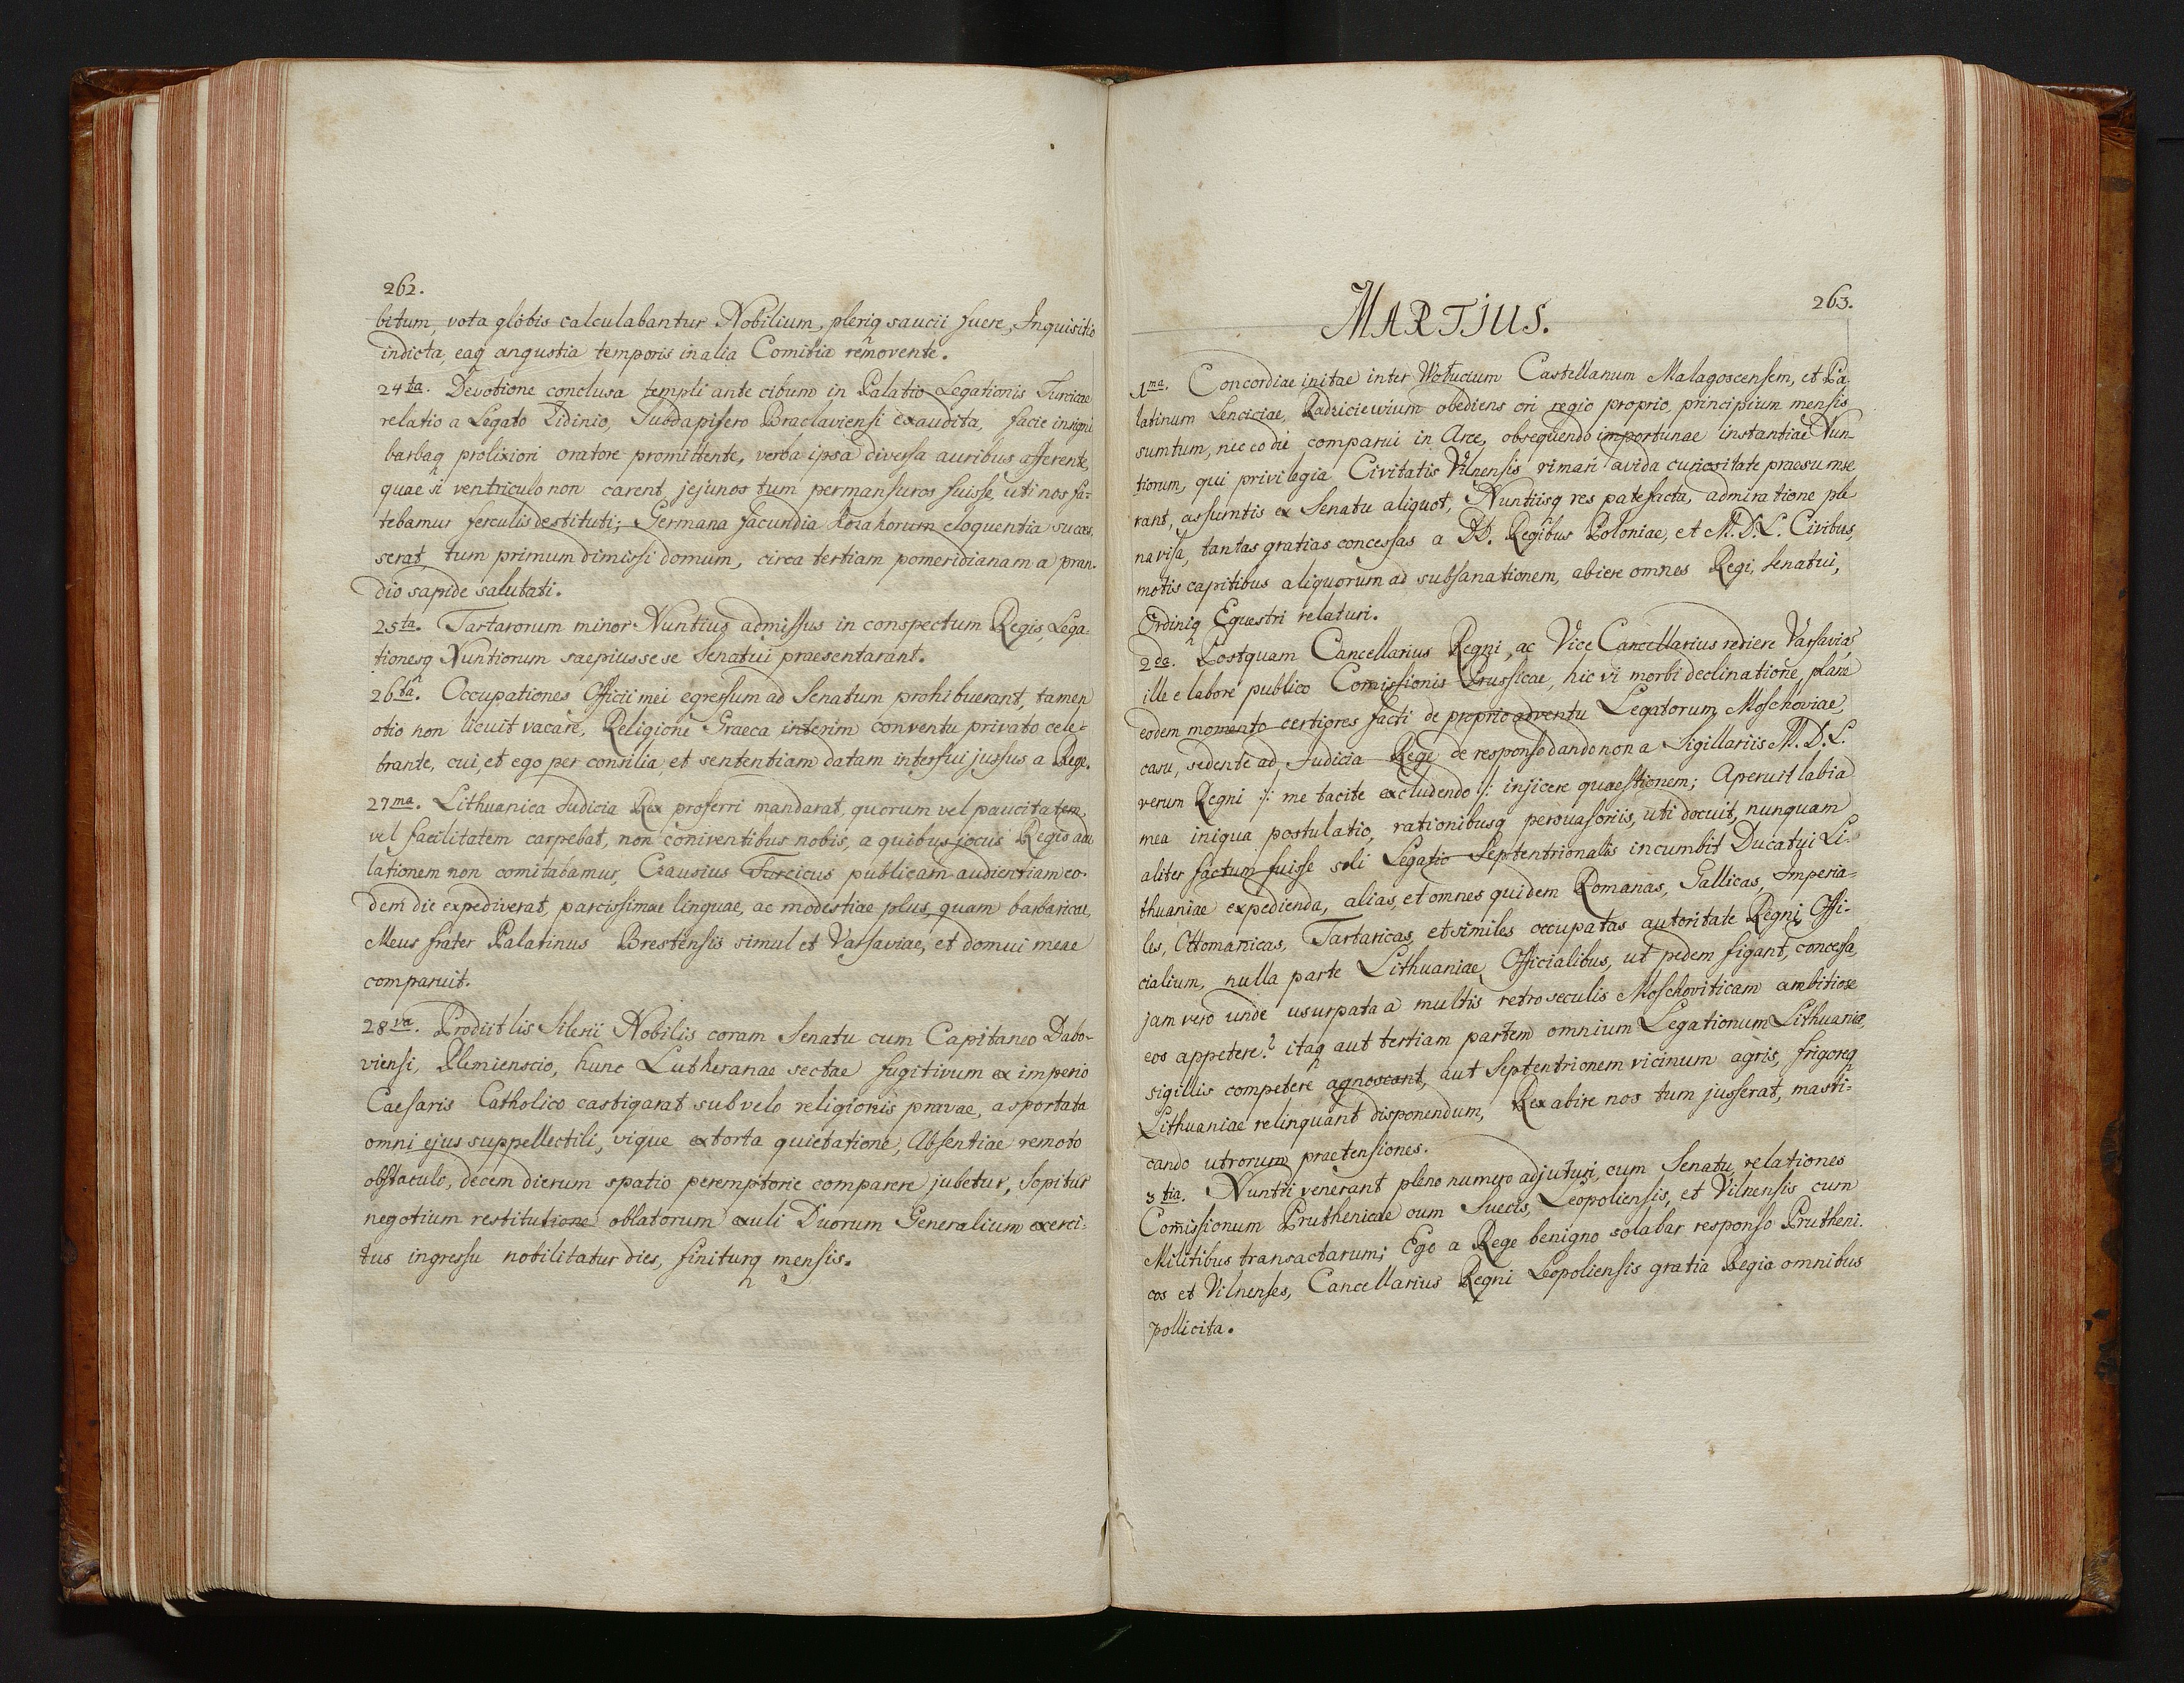 262.
bitum, vota globis calculabantur Nobilium, pleriq saucii fuere, Inquisitio
indicta, eaq angustia temporis in alia Comitia removente.
24ta. Devotione conclusa templi ante cibum in Palatio Legationis Turcicae
relatio a Legato Zidinio, Subdapifero Braclaviensi exaudita, facie insigni
barbaq prolixiori oratore promittente, verba ipsa diversa auribus afferente,
quae si ventriculo non carent jejunos tum permansuros fuisse, uti nos fa-
tebamur ferculis destituti; Germana facundia Kozakorum eloquentia succes,
serat, tum primum dimissi domum, circa tertiam pomeridianam a pran-
dio sapide salutati.
25ta. Tartarorum minor Nuntius admissus in conspectum Regis, Lega-
tionesq Nuntiorum saepius sese Senatui praesentarant.
26ta. Occupationes Officii mei egressum ad Senatum prohibuerant, tamen
otio non licuit vacare, Religione Graeca interim conventu privato cele-
brante, cui, et ego per consilia, et sententiam datam interfui jussus a Rege.
27ma. Lithuanica Judicia Rex proferri mandarat, quorum vel paucitatem,
vel facilitatem carpebat, non coniventibus nobis, a quibus jocus Regis adu
lationem non comitabamur, Czausius Turcicus publicam audientiam eo-
dem die expediverat, parcissimae linguae, ac modestiae plus, quam barbaricae,
Meus frater Palatinus Brestensis simul et Varsaviae, et domui meae
comparuit.
28va. Prodiit lis Silerii Nobilis coram Senatu cum Capitaneo Dabo-
viensi, Plemienscio, hunc Lutheranae sectae fugitivum ex imperio
Caesaris Catholico castigarat sub velo religionis pravae, asportata
omni ejus suppellectili, vique extorta quietatione, Absentiae remoto
obstaculo, decem dierum spatio peremptorie comparere jubetur, Sopitur
negotium restitutione oblatorum exuli Duorum Generalium exerci-
tus ingressu nobilitatur dies, finiturq mensis.
MARTIUS.
263.
1ma. Concordiae initae inter Wołucium Castellanum Malagoscensem, et Pa-
latinum Lenciciae, Radziciewium obediens ori regio proprio principium mensis
sumtum, nec eo die comparui in Arce, obsequendo importunae instantiae Nun-
tiorum, qui privilegia Civitatis Vilnensis rimari avida curiositate praesumse
rant, assumtis ex Senatu aliquot, Nuntiisq res patefacta, admiratione ple
na visa, tantas gratias concessas a DD. Regibus Poloniae, et M. D. L. Civibus,
motis capitibus aliquorum ad subsanationem, abiere omnes Regi, Senatui,
Ordiniq Equestri relaturi.
2da. Postquam Cancellarius Regni, ac Vice Cancellarius rediere Varsavia,
ille e labore publico Comissionis Prussicae, hic vi morbi declinatione, plane
eodem momento certiores facti de proprio adventu Legatorum Moschoviae,
casu, sedente ad Judicia Rege de responso dando non a Sigillariis M. D. L.
verum Regni :/: me tacite excludendo :/: injicere quaestionem; Aperuit labia
mea iniqua postulatio, rationibusq persuasoriis, uti docuit, nunquam
aliter factum fuisse soli Legatio Septentrionalis incumbit Ducatui Li-
thuaniae expedienda, alias, et omnes quidem Romanas, Gallicas, Imperia-
les, Ottomanicas, Tartaricas, et similes occupatas autoritate Regni Offi-
cialium, nulla parte Lithuaniae Officialibus, ut pedem figant, concessa,
jam vero unde usurpata a multis retro seculis Moschoviticam ambitiose
eos appetere? itaq aut tertiam partem omnium Legationum Lithuaniae,
sigillis competere agnoscant, aut Septentrionem vicinum agris, frigoreq
Lithuaniae relinquant disponendum, Rex abire nos tum jusserat, masti-
cando utrorum praetensiones.
3tia. Nuntii venerant pleno numero adjuturi, cum Senatu, relationes
Comissionum Pruthenicae cum Suecis, Leopoliensis, et Vilnensis cum
Militibus transactarum; Ego a Rege benigno solabar responso Prutheni-
cos et Vilnenses, Cancellarius Regni Leopoliensis gratia Regia omnibus
pollicita.